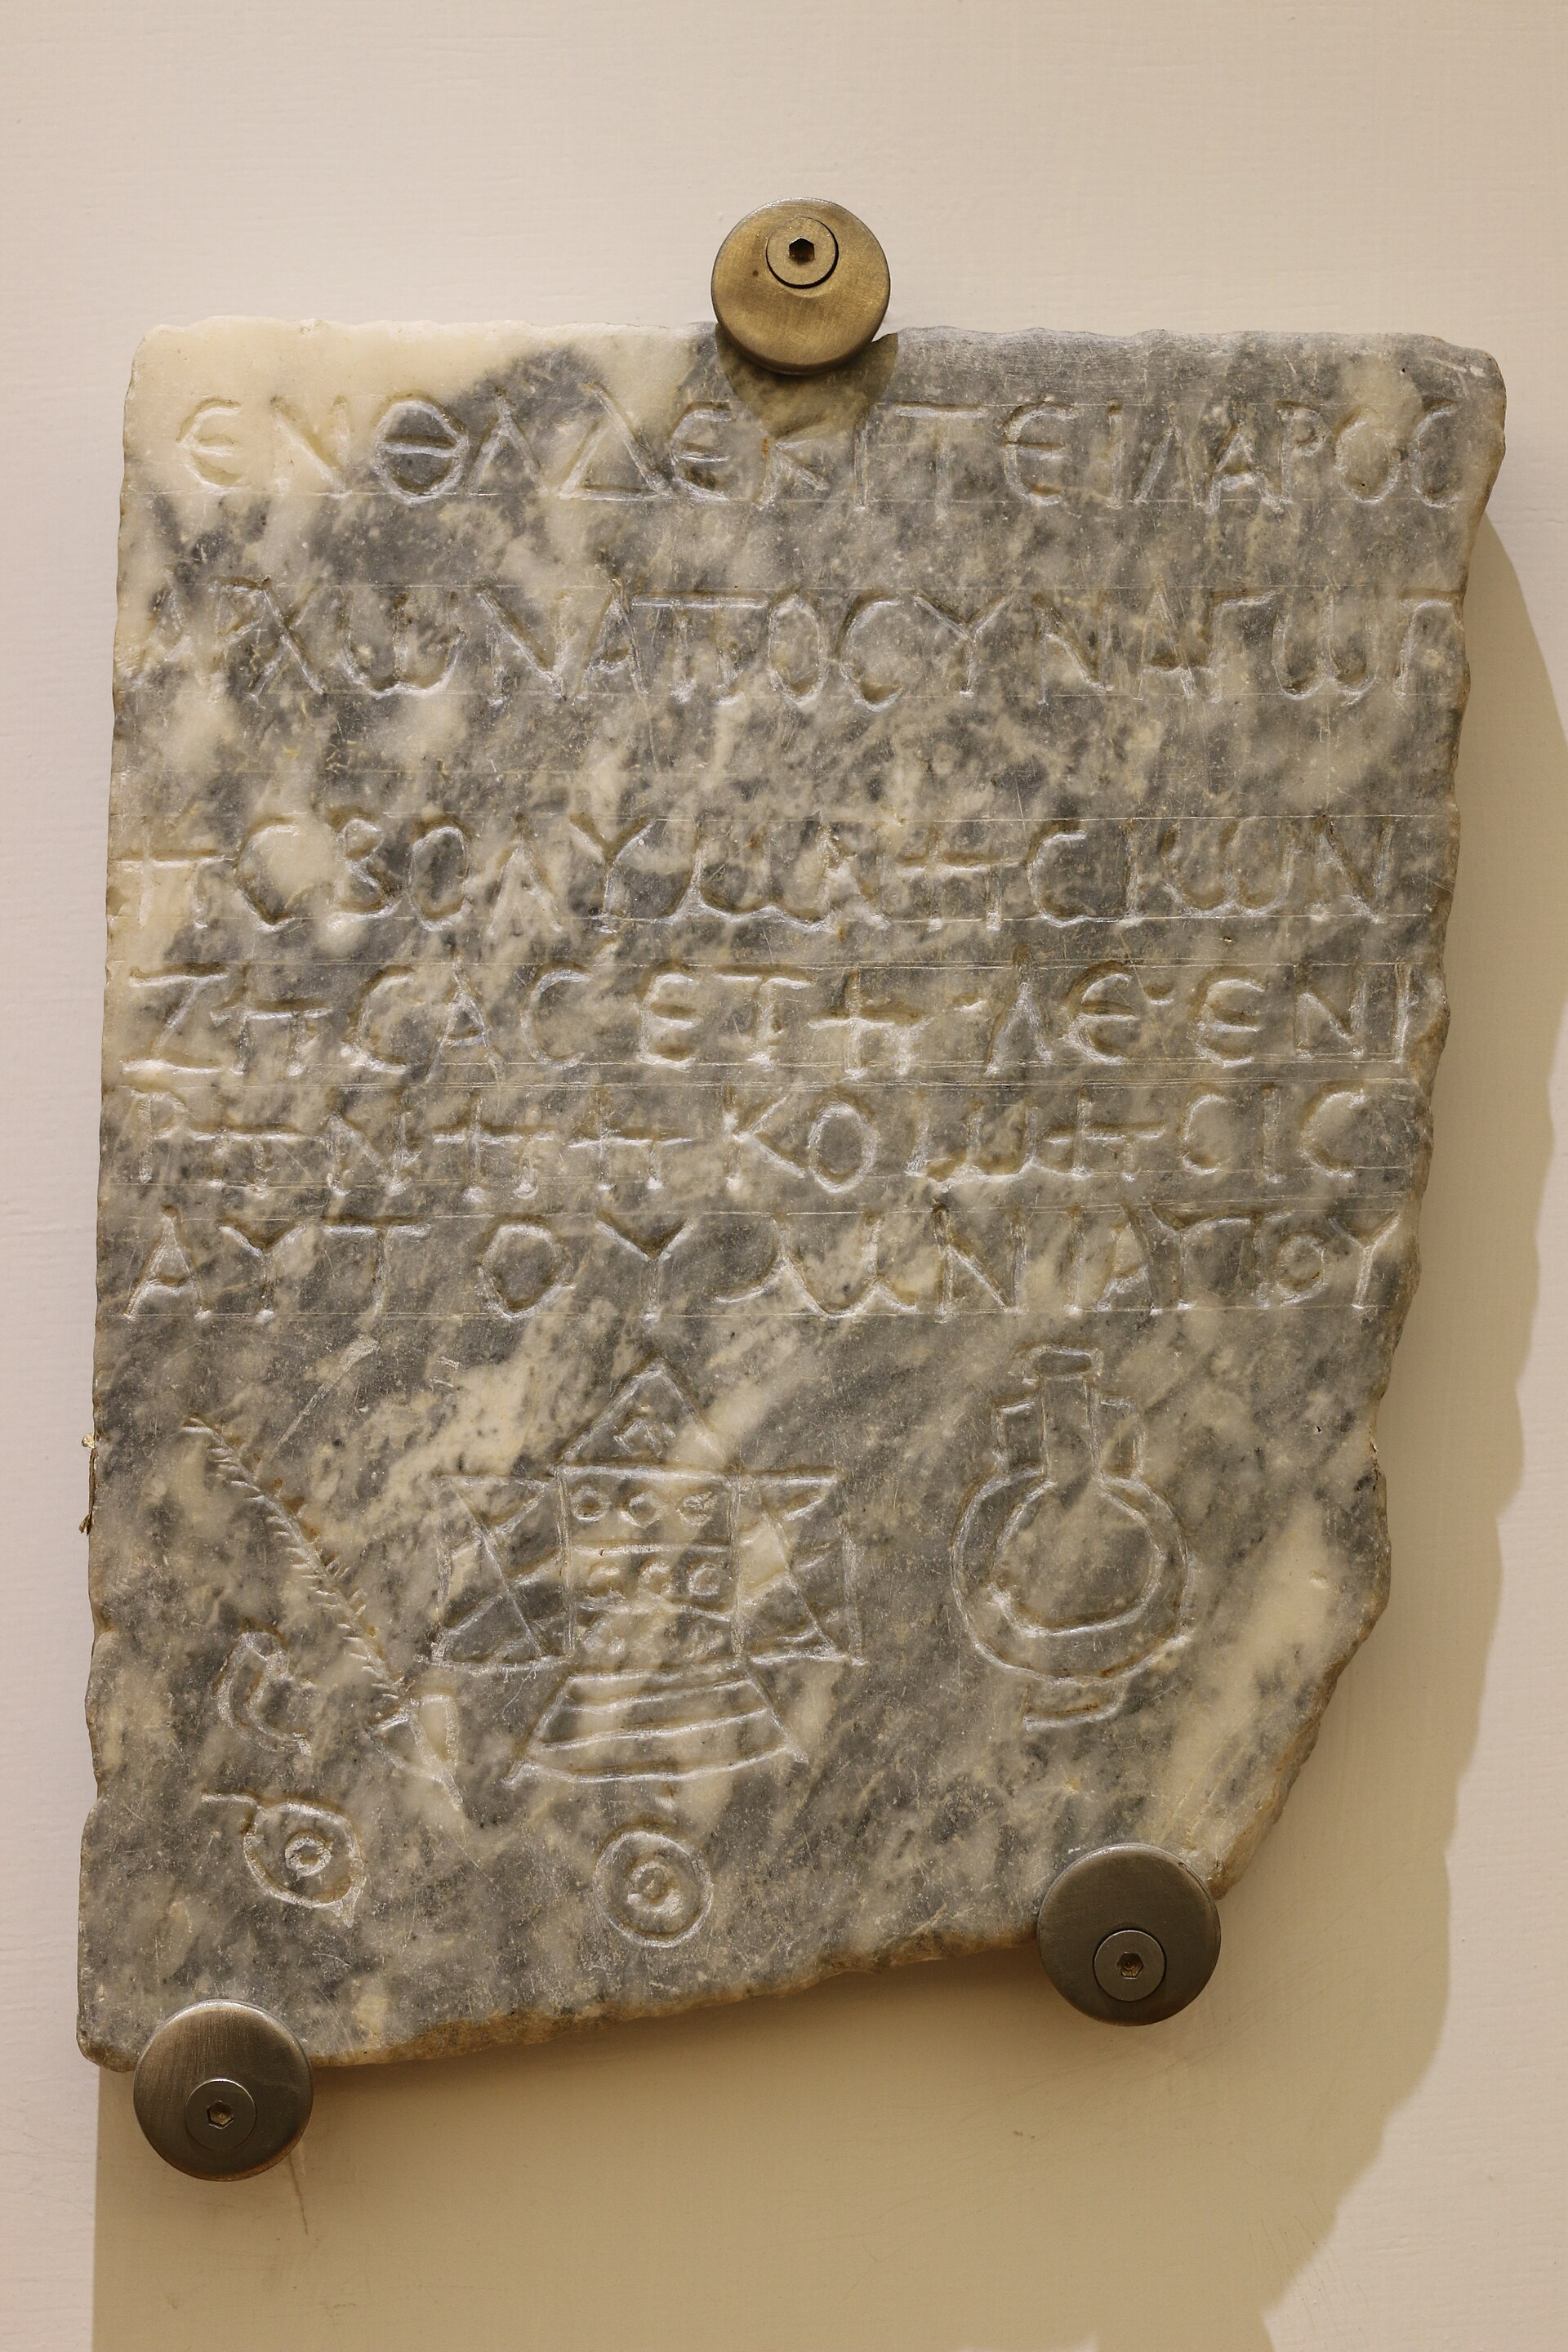 ΕΝΘΑΔΕΚΙΤΕΙΛΑΡΟϹ
ΑΡΧΩΝΑΠΟϹΥΝΑΓΩΓ
ΗϹΒΟΛΥΜΝΗϹΙΩΝ
ΖΗϹΑϹΕΤΗ·ΛΕ·ΕΝΙ
ΡΗΝΗΗΚΟΜΗϹΙϹ
ΑΥΤΟΥΜΝΙΑΥΤΟΥ